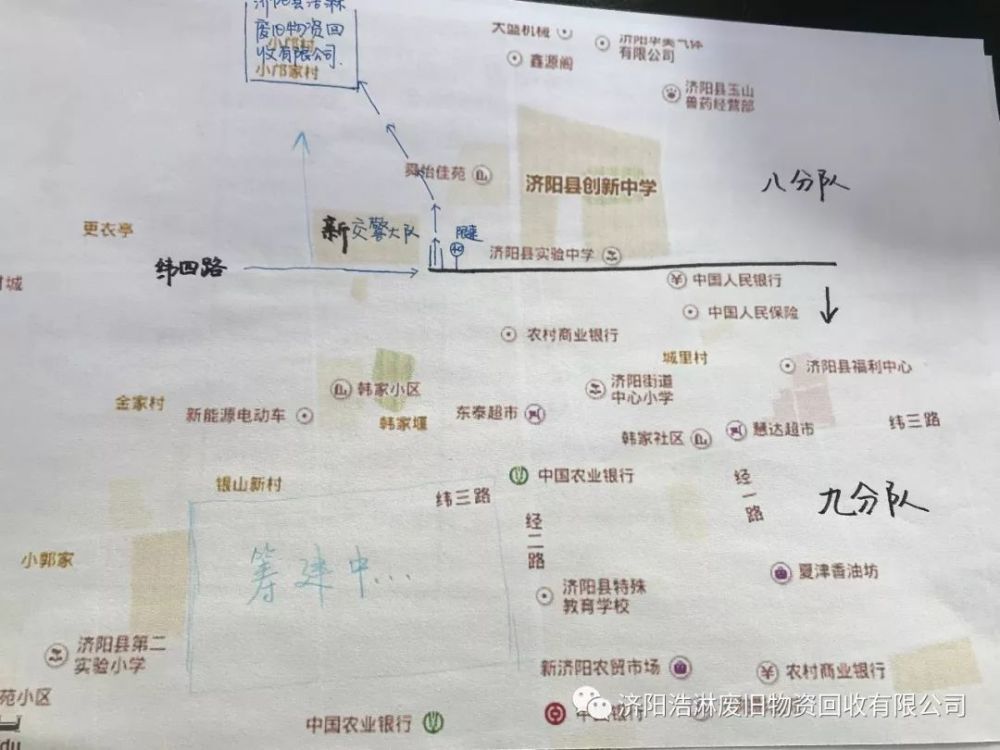 济阳县浩淋
废旧物资回
收有限公司.
小邝村
小邝家村
大盛机械
济阳华美气体
有限公司
鑫源阁
济阳县玉山
兽药经营部
舜怡佳苑
济阳县创新中学
八分队
更衣亭
新交警大队
限速
40
济阳县实验中学
纬四路
村城
中国人民银行
中国人民保险
农村商业银行
城里村
济阳县福利中心
韩家小区
济阳街道
中心小学
金家村
新能源电动车
东泰超市
韩家堰
韩家社区
慧达超市
纬三路
银山新村
纬三路
中国农业银行
经一路
九分队
经二路
小郭家
筹建中...
夏津香油坊
济阳县特殊
教育学校
济阳县第二
实验小学
新济阳农贸市场
农村商业银行
苑小区
中国农业银行
济阳浩淋废旧物资回收有限公司
du